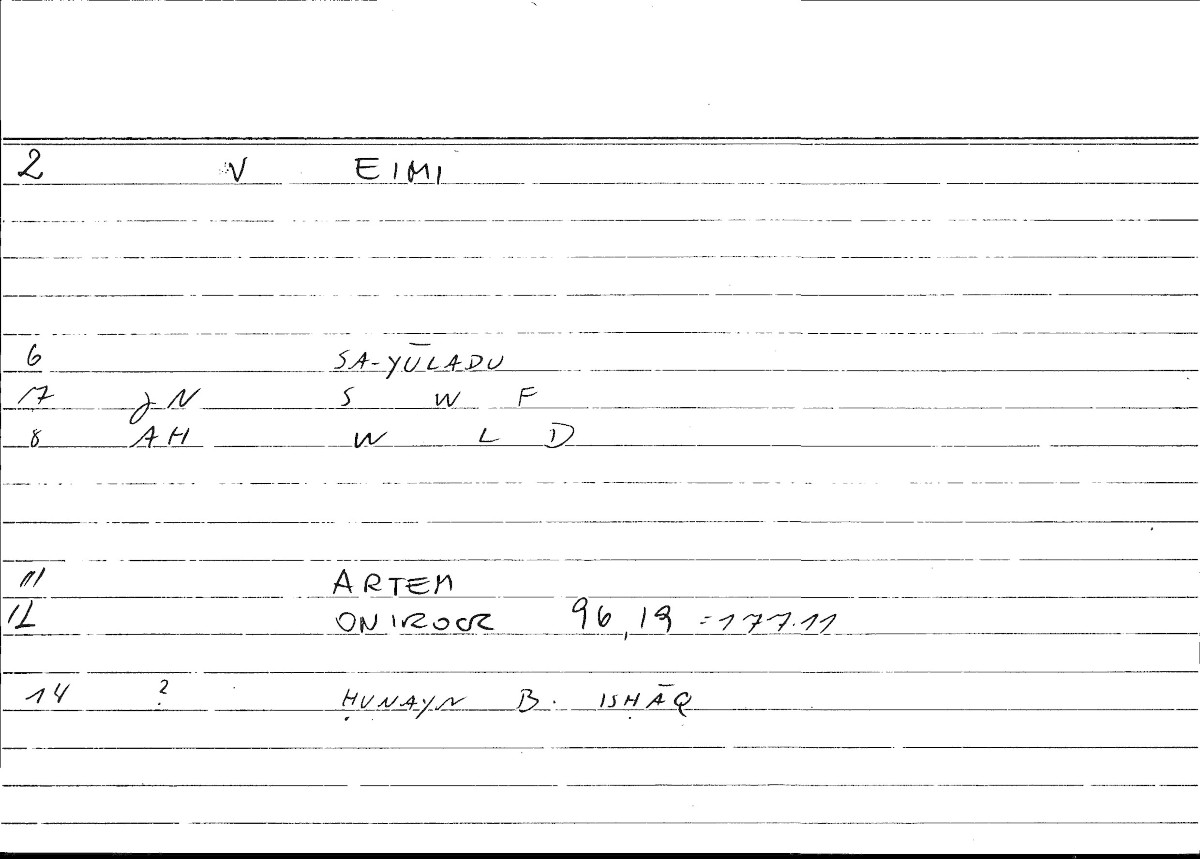 2 V EIMI
6 SA-YŪLADU
17 JN S W F
8 AH W L D
11 ARTEM
12 ONIROCR 96,19 = 177.11
14 ? ḤUNAYN B. ISḤĀQ